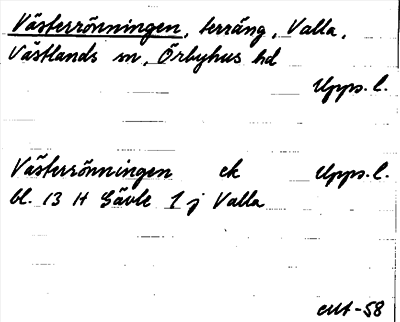 Västerrönningen, terräng, Valla,
Västlands sn, Örbyhus hd
Upps. l.
Västerrönningen ek Upps. l.
bl. 13 H Gävle 1 j Valla
EUt-58